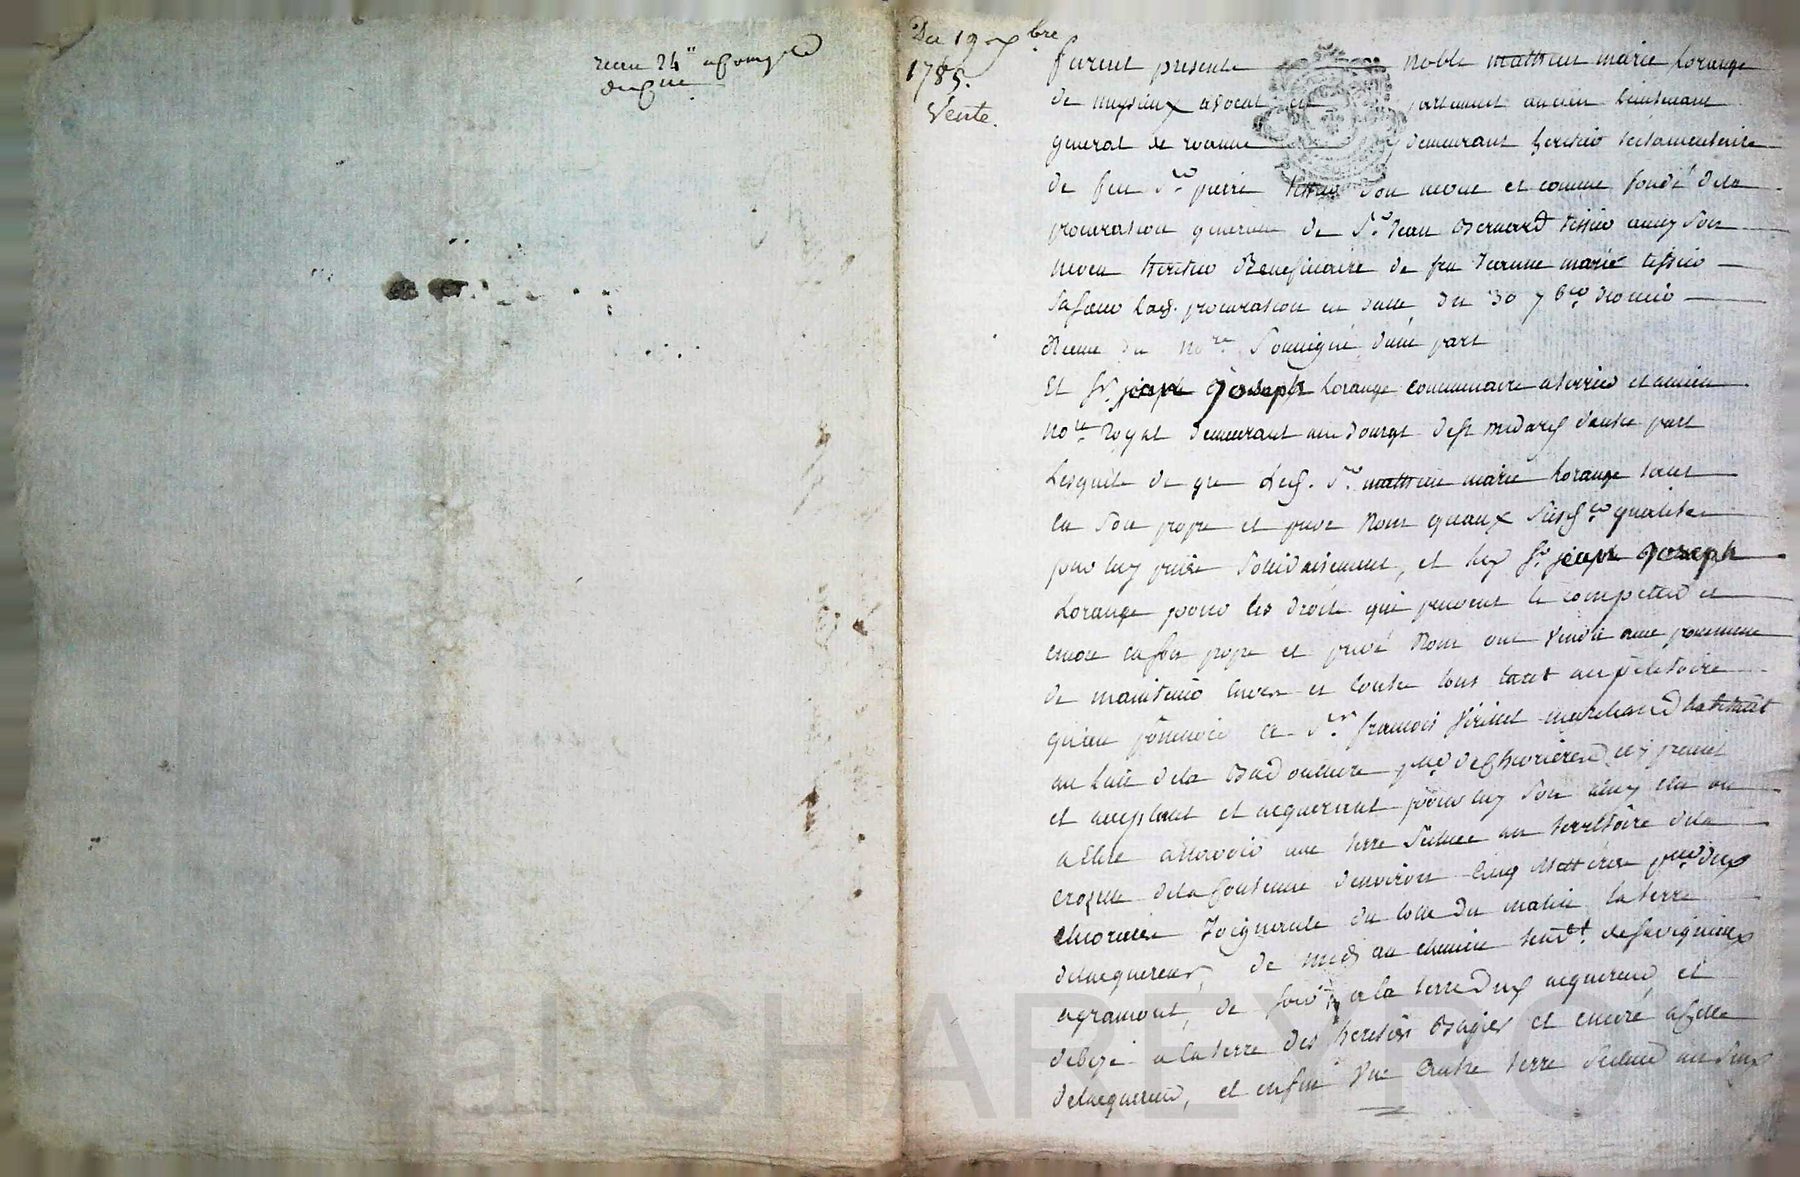 recu 24"
Du 19 xbre
1785.
Vente.
furent presents noble matthieu marie Lorange
de avocat en parlement ancien lieutenant
general de roanne demeurant heritier testamentaire
de feu Sr. pierre tissier son neveu et comme fondé dela
procuration generale de Sr. Jean Bernard tissier aussy son
neveu heritier Beneficiaire de feu Jeanne marie tissier
sa soeur lad. procuration en datte du 30 7bre dernier
Recue du nore. d'une part
Et Sr. jean Joseph Lorange commissaire a terrier et ancien
nore. Royal demeurant au bourg de st medard d'autre part
Lesquels de gre Led. Sr. matthieu marie Lorange tant
en son propre et privé Nom quaux susd. qualites
par luy prises solidairement, et led Sr jean Joseph
Lorange pour les droits qui peuvent le competer et
en son propre et privé Nom ont vendu avec promesse
de maintenir envers et contre tous tant au petitoire
qu'au possessoire a Sr. francois marchand habitant
au lieu dela Badouliere psse. de Chevrieres icy present
et acceptant et acquerant pour luy son amy elu ou
a elire ascavoir une terre située au territoire dela
dela fontanne denviron cinq psse. dud
Chevrieres Joignante du cotté du matin la terre
delacquereur, de midy au chemin tendt. de
agramont, de soir a la terre dud acquereur, et
debize a la terre des heritiers et encore a celle
delacquereur, et enfin une autre terre située au
al CHAREYRON